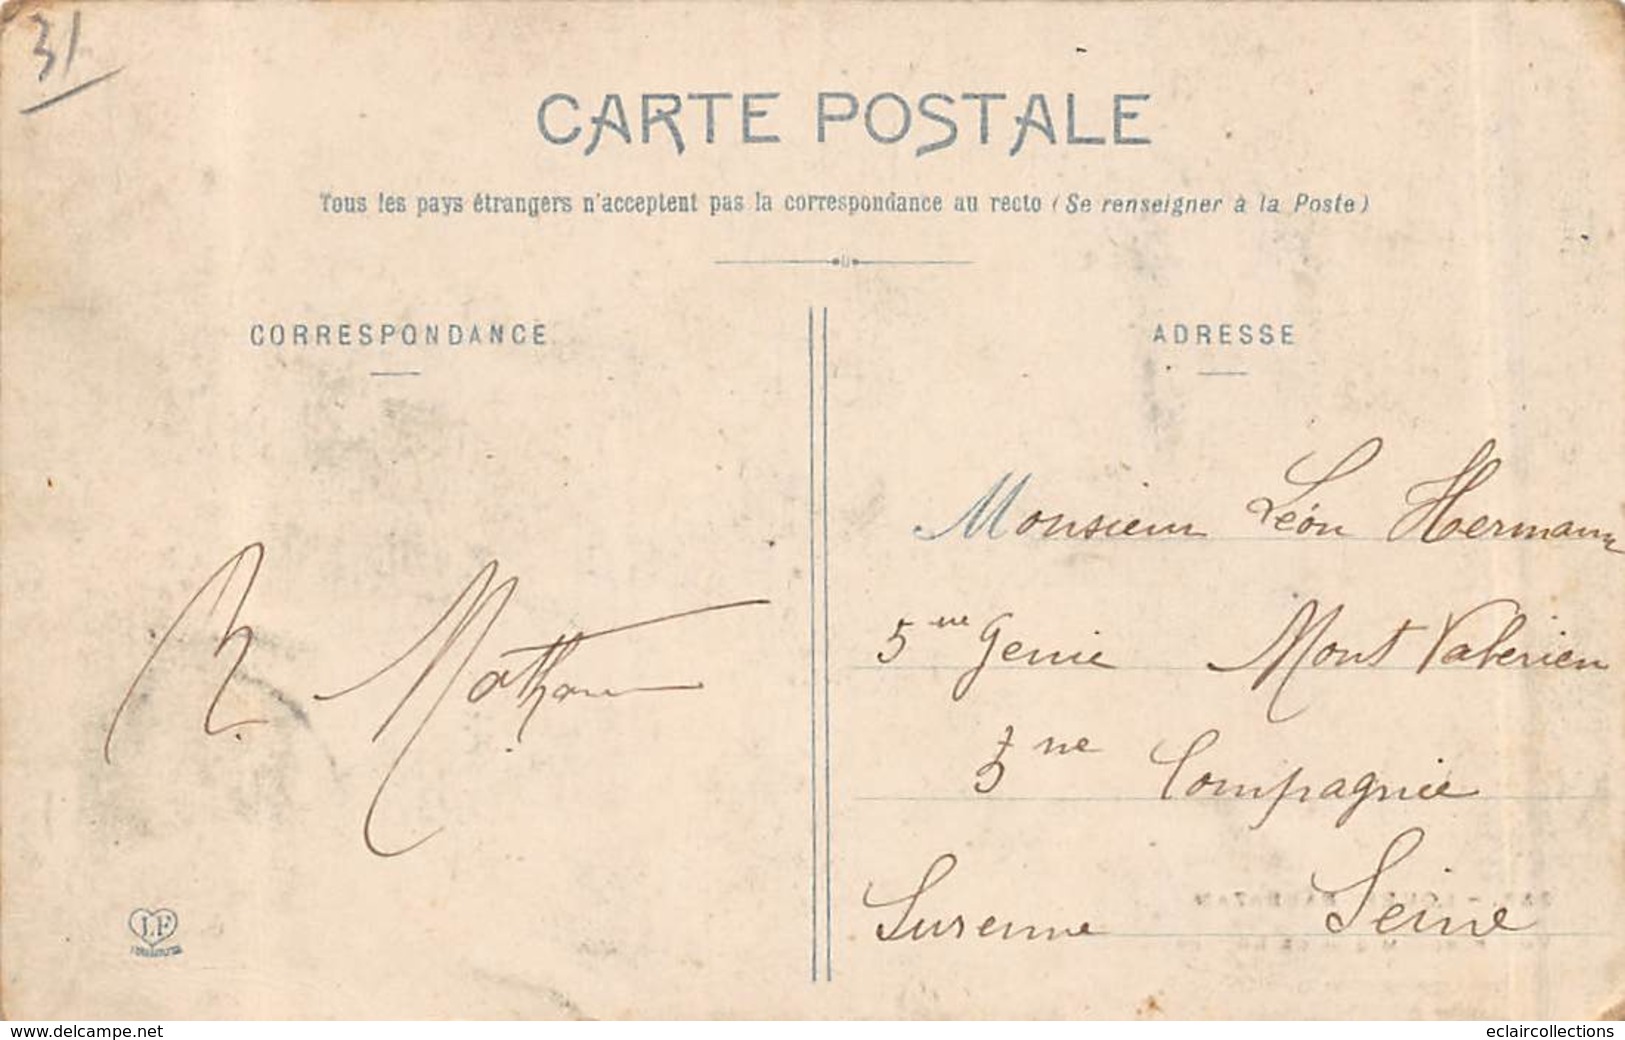 31
CARTE POSTALE
Tous les pays étrangers n'acceptent pas la correspondance au recto (Se renseigner à la Poste)
CORRESPONDANCE
ADRESSE
Monsieur Léon Hermann
5me Genie Mont Valerien
5me Compagnie
Surenne Seine
LF
www.delcampe.net
eclaircollections